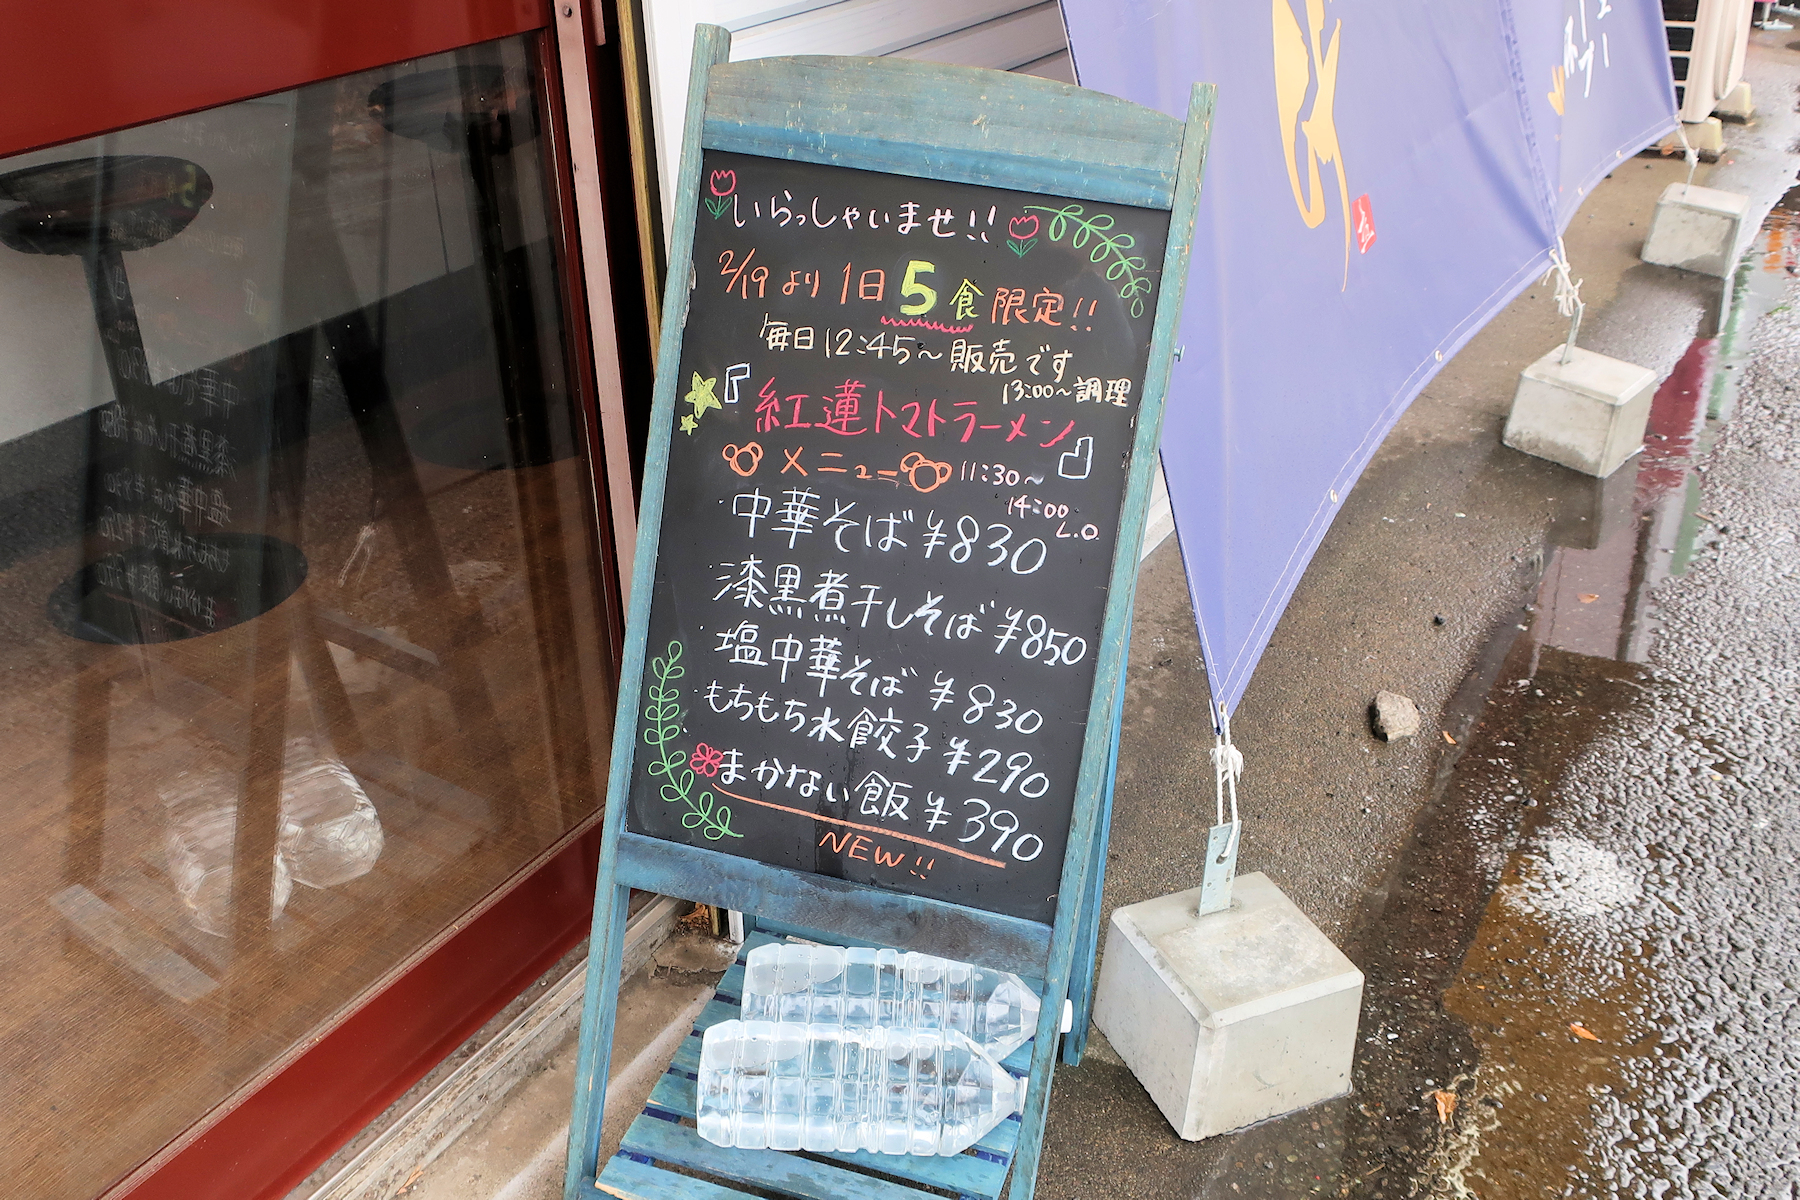 いらっしゃいませ!!
2/19より1日5食限定!!
毎日12:45〜販売です
13:00〜調理
『紅蓮トマトラーメン』
メニュー 11:30〜
14:00
L.O.
中華そば¥830
漆黒煮干しそば¥850
塩中華そば¥830
もちもち水餃子¥290
まかない飯¥390
NEW!!